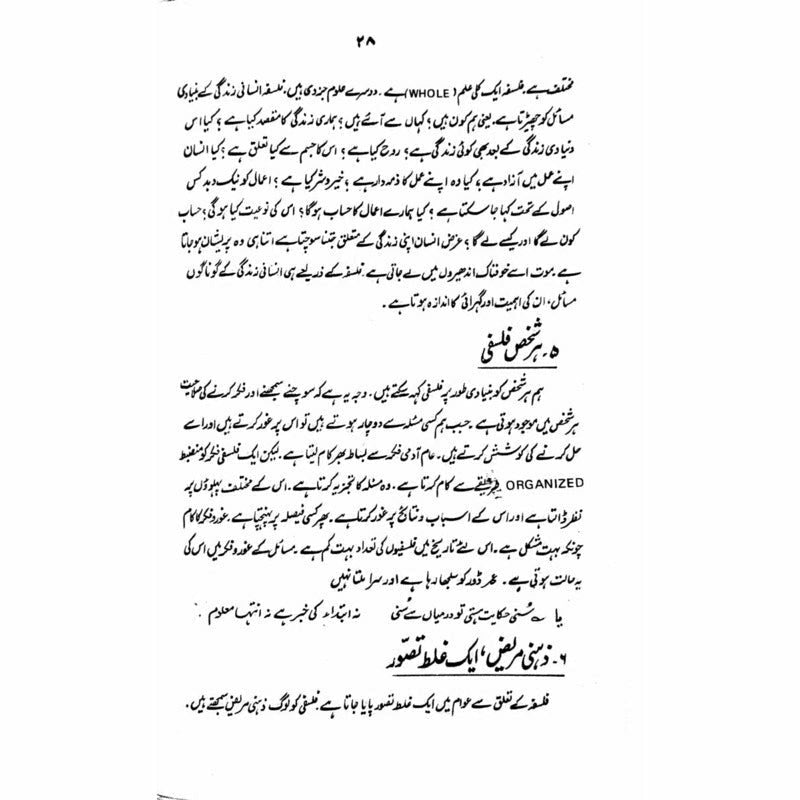 ۲۸
مختلف ہے۔ فلسفہ ایک کلی علم (WHOLE) ہے۔ دوسرے علوم جزوی ہیں۔ فلسفہ انسانی زندگی کے بنیادی
مسائل کو چھیڑتا ہے۔ یعنی ہم کون ہیں؟ کہاں سے آئے ہیں؟ ہماری زندگی کا مقصد کیا ہے؟ کیا اس
دنیاوی زندگی کے بعد بھی کوئی زندگی ہے؟ روح کیا ہے؟ اس کا جسم سے کیا تعلق ہے؟ کیا انسان
اپنے عمل میں آزاد ہے، کیا وہ اپنے عمل کا ذمہ دار ہے؟ خیر و شر کیا ہے؟ اعمال کو نیک و بد کس
اصول کے تحت کہا جا سکتا ہے؟ کیا ہمارے اعمال کا حساب ہوگا؟ اس کی نوعیت کیا ہوگی؟ حساب
کون لے گا اور کیسے لے گا؟ غرض انسان اپنی زندگی کے متعلق جتنا سوچتا ہے اتنا ہی وہ پریشان ہو جاتا
ہے۔ موت اسے خوفناک اندھیروں میں لے جاتی ہے۔ فلسفہ کے ذریعے ہی انسانی زندگی کے گوناگوں
مسائل، ان کی اہمیت اور گہرائی کا اندازہ ہوتا ہے۔
۵۔ ہر شخص فلسفی
ہم ہر شخص کو بنیادی طور پر فلسفی کہہ سکتے ہیں۔ وجہ یہ ہے کہ سوچنے سمجھنے اور فکر کرنے کی صلاحیت
ہر شخص میں موجود ہوتی ہے۔ جب ہم کسی مسئلہ سے دوچار ہوتے ہیں تو اس پر غور کرتے ہیں اور اسے
حل کرنے کی کوشش کرتے ہیں۔ عام آدمی فکر سے بساط بھر کام لیتا ہے۔ لیکن ایک فلسفی فکر کو منضبط
ORGANIZED طریقے سے کام کرتا ہے۔ وہ مسئلہ کا تجزیہ کرتا ہے۔ اس کے مختلف پہلوؤں پر
نظر ڈالتا ہے اور اس کے اسباب و نتائج پر غور کرتا ہے۔ پھر کسی فیصلہ پر پہنچتا ہے۔ غور و فکر کا کام
چونکہ بہت مشکل ہے۔ اس لئے تاریخ میں فلسفیوں کی تعداد بہت کم ہے۔ مسائل کے غور و فکر میں اس کی
یہ حالت ہوتی ہے۔ ڈور کو سلجھا رہا ہے اور سرا ملتا نہیں
یا سُنی حکایت ہستی تو درمیاں سے سُنی نہ ابتداء کی خبر ہے نہ انتہا معلوم
۶۔ ذہنی مریض، ایک غلط تصوّر
فلسفہ کے تعلق سے عوام میں ایک غلط تصور پایا جاتا ہے۔ فلسفی کو لوگ ذہنی مریض سمجھتے ہیں۔